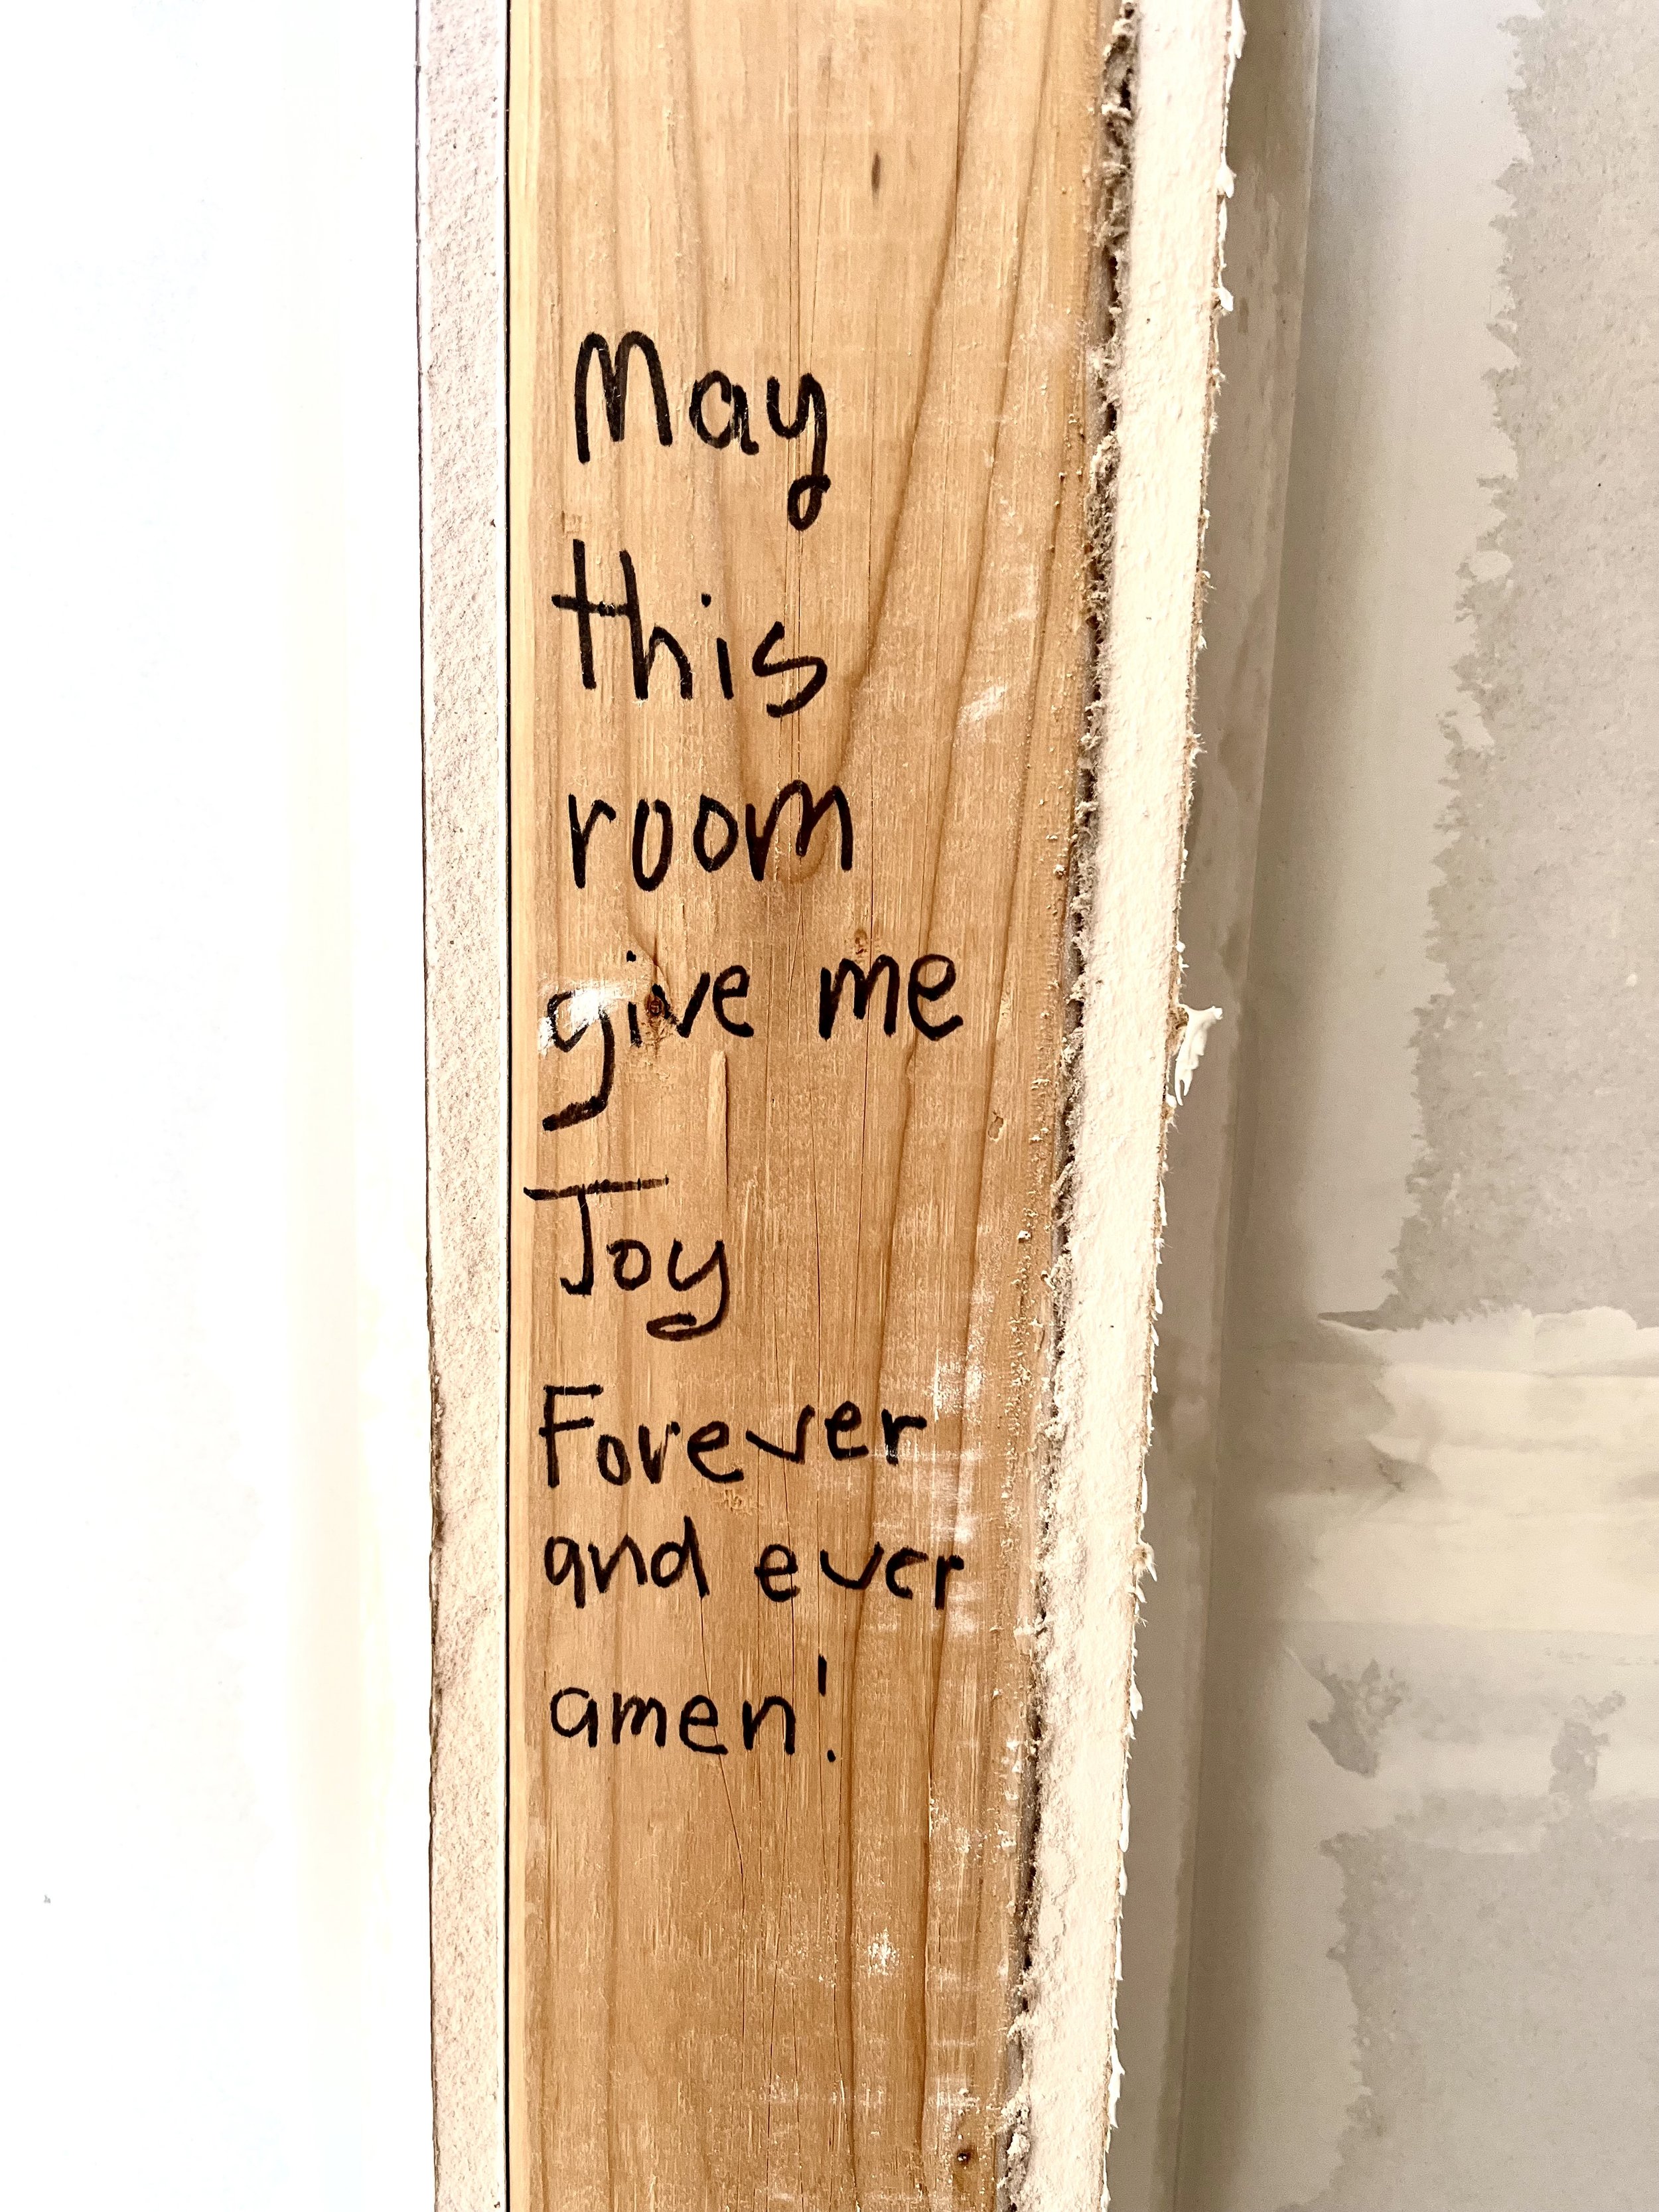 May
this
room
give me
Joy
Forever
and ever
amen!